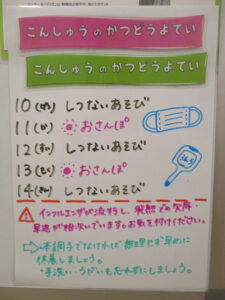 こんしゅうのかつどうよてい
こんしゅうのかつどうよてい
10(げつ) しつないあそび
11(か) おさんぽ
12(すい) しつないあそび
13(もく) おさんぽ
14(きん) しつないあそび
インフルエンザが流行し、発熱での欠席・
早退が相次いでいます。お気を付けください。
→本調子でなければ無理せず早めに
休養しましょう。
・手洗い・うがいも忘れずにしましょう。